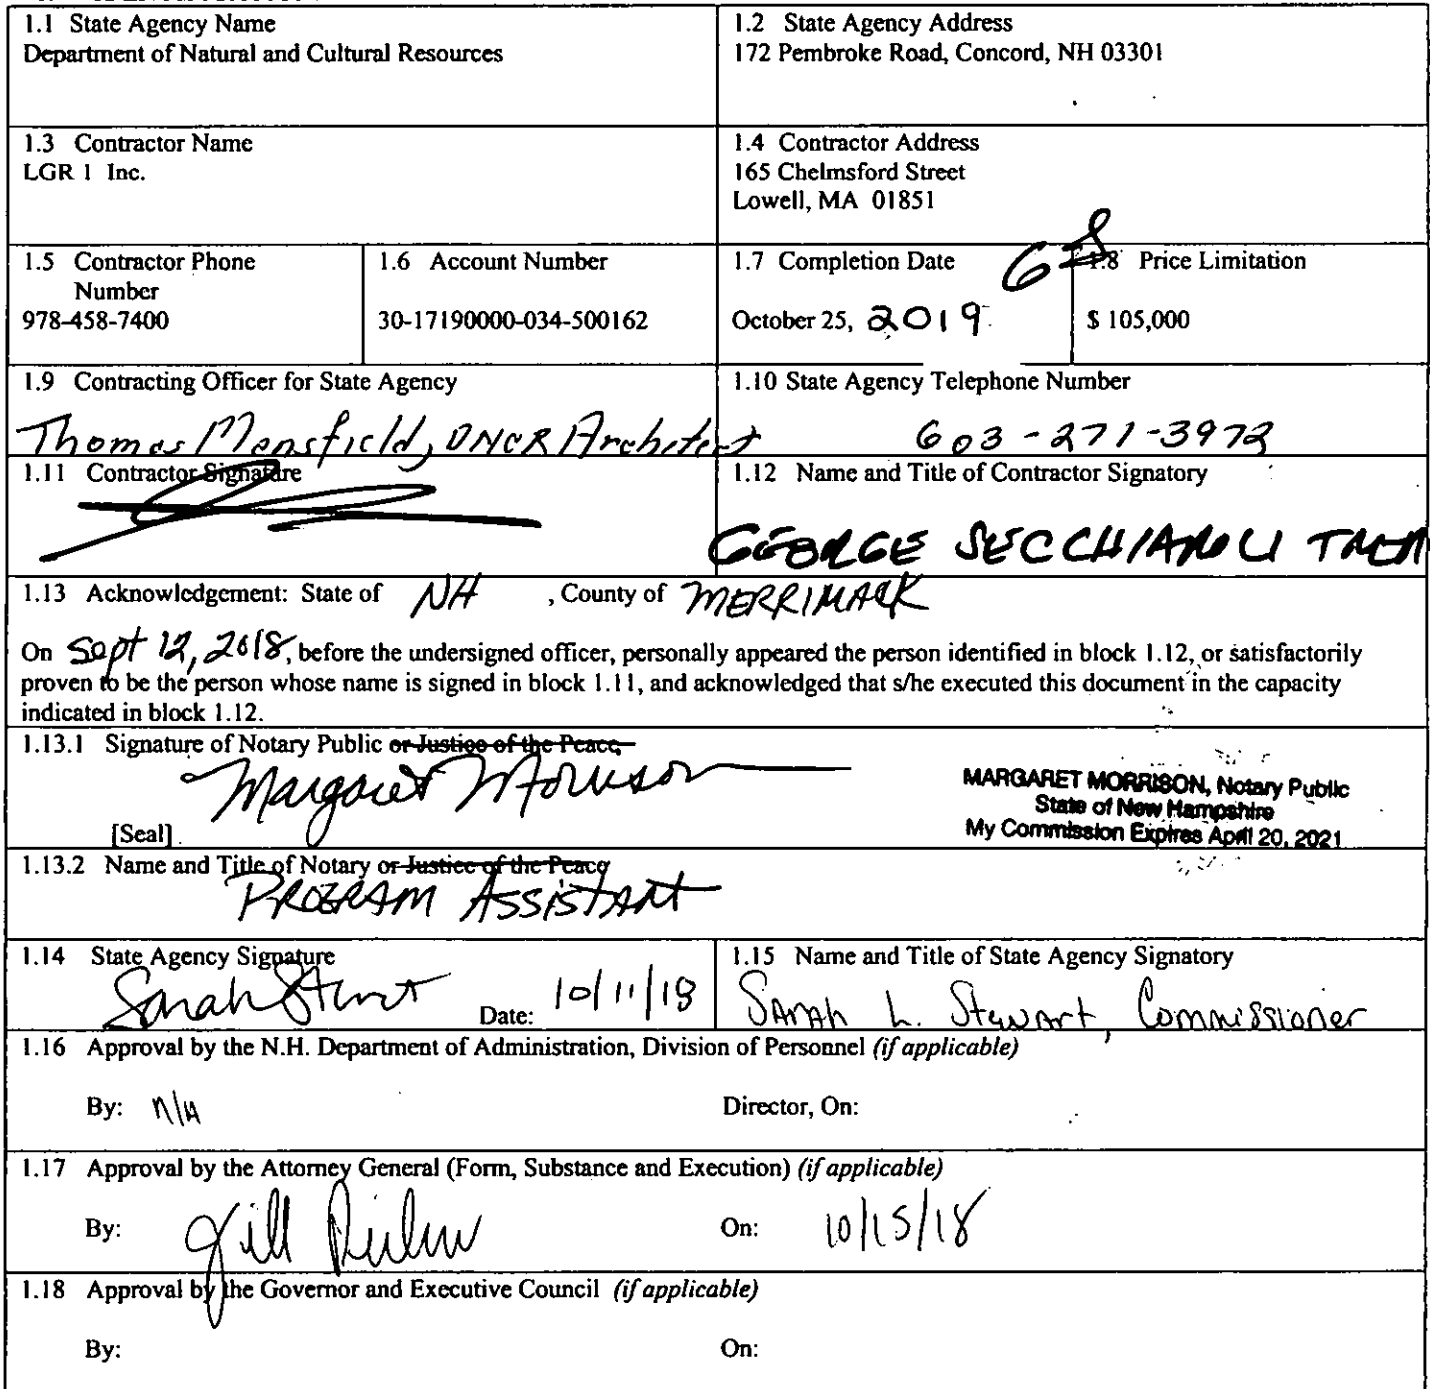 1.1 State Agency Name
Department of Natural and Cultural Resources
1.2 State Agency Address
172 Pembroke Road, Concord, NH 03301
1.3 Contractor Name
LGR 1 Inc.
1.4 Contractor Address
165 Chelmsford Street
Lowell, MA 01851
1.5 Contractor Phone
Number
978-458-7400
1.6 Account Number
30-17190000-034-500162
1.7 Completion Date
October 25, 2019
GS
1.8 Price Limitation
$ 105,000
1.9 Contracting Officer for State Agency
Thomas Mansfield, DNCR Architect
1.10 State Agency Telephone Number
603-271-3972
1.11 Contractor Signature
1.12 Name and Title of Contractor Signatory
GEORGE SECCHIAROLI
1.13 Acknowledgement: State of NH , County of MERRIMACK
On Sept 12, 2018, before the undersigned officer, personally appeared the person identified in block 1.12, or satisfactorily
proven to be the person whose name is signed in block 1.11, and acknowledged that s/he executed this document in the capacity
indicated in block 1.12.
1.13.1 Signature of Notary Public or Justice of the Peace
Margaret Morrison
[Seal]
MARGARET MORRISON, Notary Public
State of New Hampshire
My Commission Expires April 20, 2021
1.13.2 Name and Title of Notary or Justice of the Peace
PROGRAM ASSISTANT
1.14 State Agency Signature
Sarah Stewart Date: 10/11/18
1.15 Name and Title of State Agency Signatory
Sarah L. Stewart, Commissioner
1.16 Approval by the N.H. Department of Administration, Division of Personnel (if applicable)
By: n/a Director, On:
1.17 Approval by the Attorney General (Form, Substance and Execution) (if applicable)
By: Jill On: 10/15/18
1.18 Approval by the Governor and Executive Council (if applicable)
By: On: